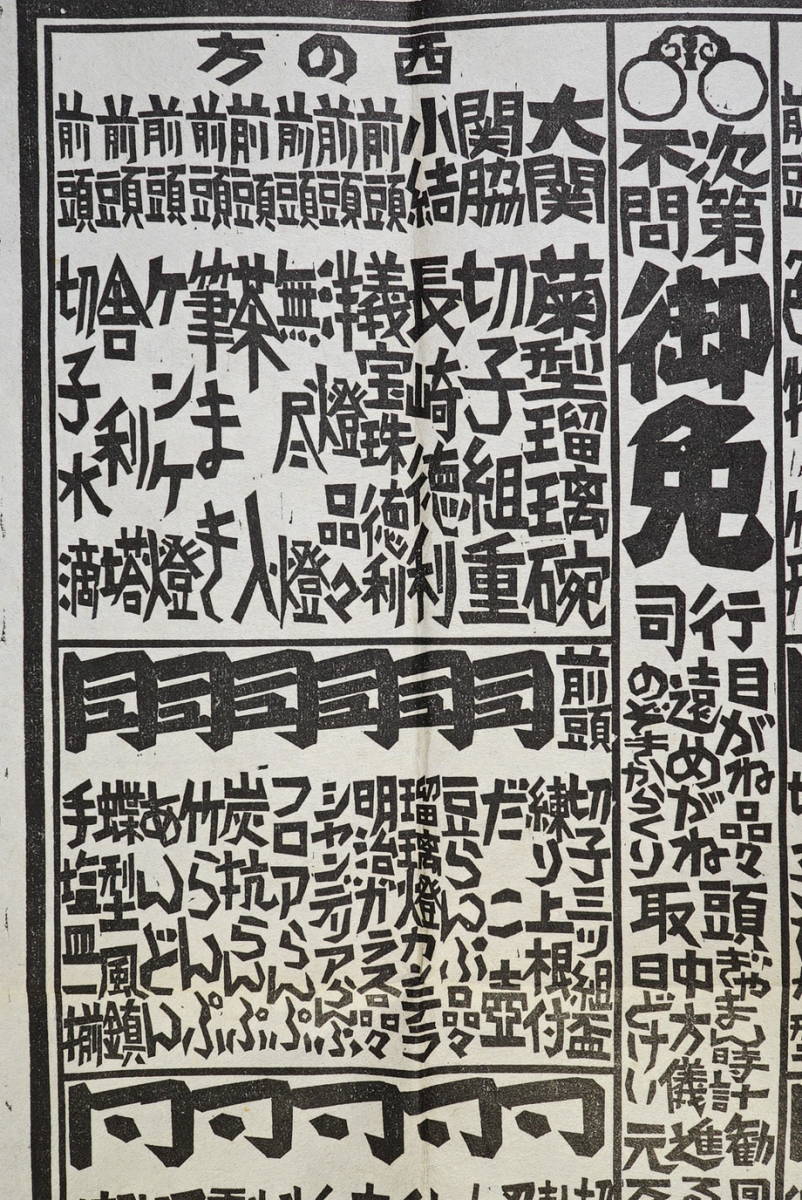 次第
不問
御免
行司
目がね品々
遠めがね
のぞきからくり
頭取
ぎやまん時計
中方儀
日どけい
勧進元
西の方
大関 菊型瑠璃碗
関脇 切子組重
小結 長崎徳利
前頭 義宝珠徳利
前頭 洋燈品々
前頭 無尽燈
前頭 茶入
前頭 筆まき
前頭 ケンケ燈
前頭 舎利塔
前頭 切子水滴
前頭 同同同同同同
切子三ツ組盃
練り上根付
だこ壺
豆らんぷ品々
瑠璃燈カンテラ
明治ガラス品々
シャンデリアらんぷ
フロアらんぷ
炭抗らんぷ
竹らんぷ
あんどん
蝶型風鎮
手塩皿一揃
同同同同同